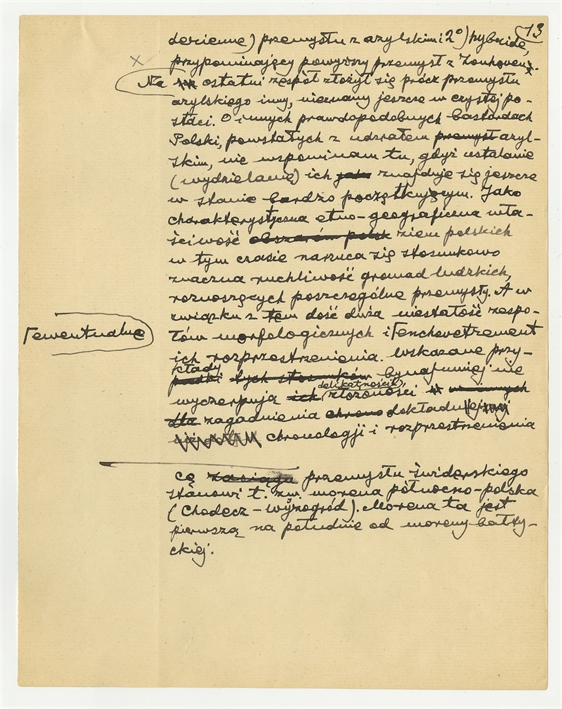 13
derienne) przemysłu z azylskim i 2°) hybrydę,
przypominający powyższy przemysł z Zonhoven.
x
Na ostatni zespół złożył się prócz przemysłu
azylskiego inny, nieznany jeszcze w czystej po-
staci. O innych prawdopodobnych bastardach
Polski, powstałych z udziałem przemysł azyl-
skim, nie wspominam tu, gdyż ustalenie
(wydzielanie) ich znajduje się jeszcze
w stanie bardzo początkującym. Jako
charakterystyczna etno-geograficzna wła-
ściwość obszarów polsk ziem polskich
w tym czasie narzuca się stosunkowo
znaczna ruchliwość gromad ludzkich,
roznoszących poszczególne przemysły. A w
związku z tem dość duża niestałość zespo-
łów morfologicznych i ⌈enchevetrement
⌈ewentualne
ich rozprzestrzenienia. Wskazane przy-
kłady tych stosunków bynajmniej nie
wyczerpują ich delikatności, złożoności
dla zagadnienia chrono dokładnej
chronologji i rozprzestrzenienia
cę zasiągu przemysłu świderskiego
stanowi t. zw. morena północno-polska
(Chodecz – Wyszogród). Morena ta jest
pierwszą na południe od moreny bałty-
ckiej.